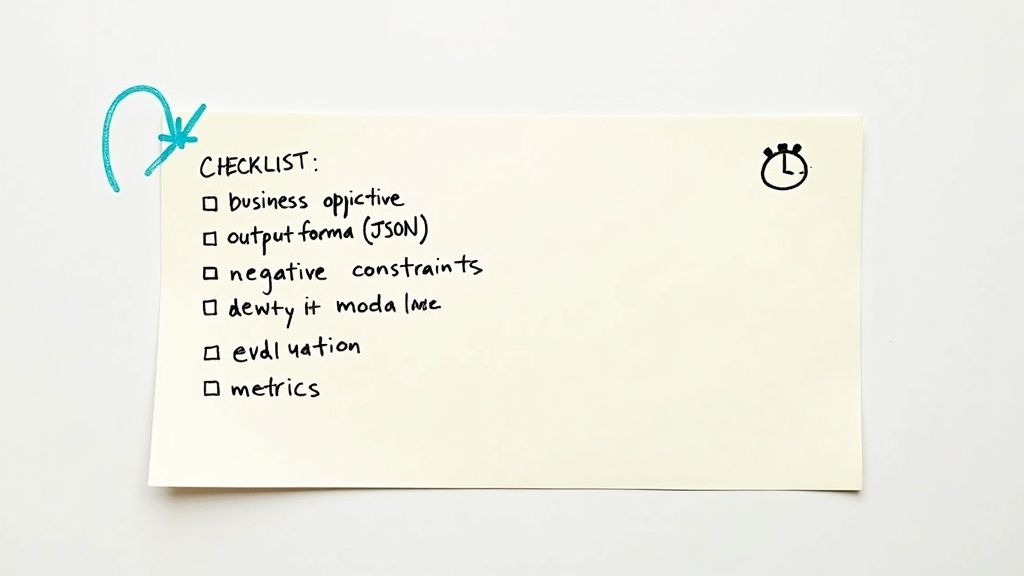 CHECKLIST:
business opjictive
output forma (JSON)
negative constraints
dewty it moda
evdluation
metrics